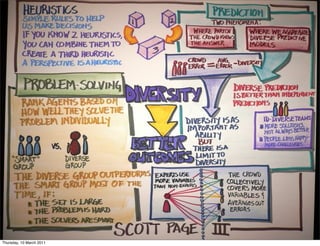 HEURISTICS
SIMPLE RULES TO HELP
US MAKE DECISIONS
IF YOU KNOW 2 HEURISTICS,
YOU CAN COMBINE THEM TO
CREATE A THIRD HEURISTIC
A PERSPECTIVE IS A HEURISTIC
PREDICTION
TWO PHENOMENA:
WHERE PARTS OF
THE CROWD KNOWS
THE ANSWER
WHERE WE AGGREGATE
DIVERSE PREDICTIVE
MODELS
CROWD ERROR = AVG. ERROR - DIVERSITY
DIVERSE PREDICTION
IS BETTER THAN INDEPENDENT
PREDICTIONS
PROBLEM-SOLVING
RANK AGENTS BASED ON
HOW WELL THEY SOLVE THE
PROBLEM INDIVIDUALLY
"SMART"
GROUP
VS.
DIVERSE
GROUP
THE DIVERSE GROUP OUTPERFORMS
THE SMART GROUP MOST OF THE
TIME, IF:
THE SET IS LARGE
THE PROBLEM IS HARD
THE SOLVERS ARE SMART
DIVERSITY
BETTER
OUTCOMES
DIVERSITY IS AS
IMPORTANT AS
ABILITY
BUT
THERE IS A
LIMIT TO
DIVERSITY
DIVERSE TEAMS
MORE SOLUTIONS,
NOT ALWAYS BETTER
PEOPLE LESS HAPPY
MORE CHALLENGES
EXPERTS USE
MORE VARIABLES
THAN NON-EXPERTS
THE CROWD
COLLECTIVELY
COVERS MORE
VARIABLES &
AVERAGES OUT
ERRORS
SCOTT PAGE III
Thursday, 10 March 2011